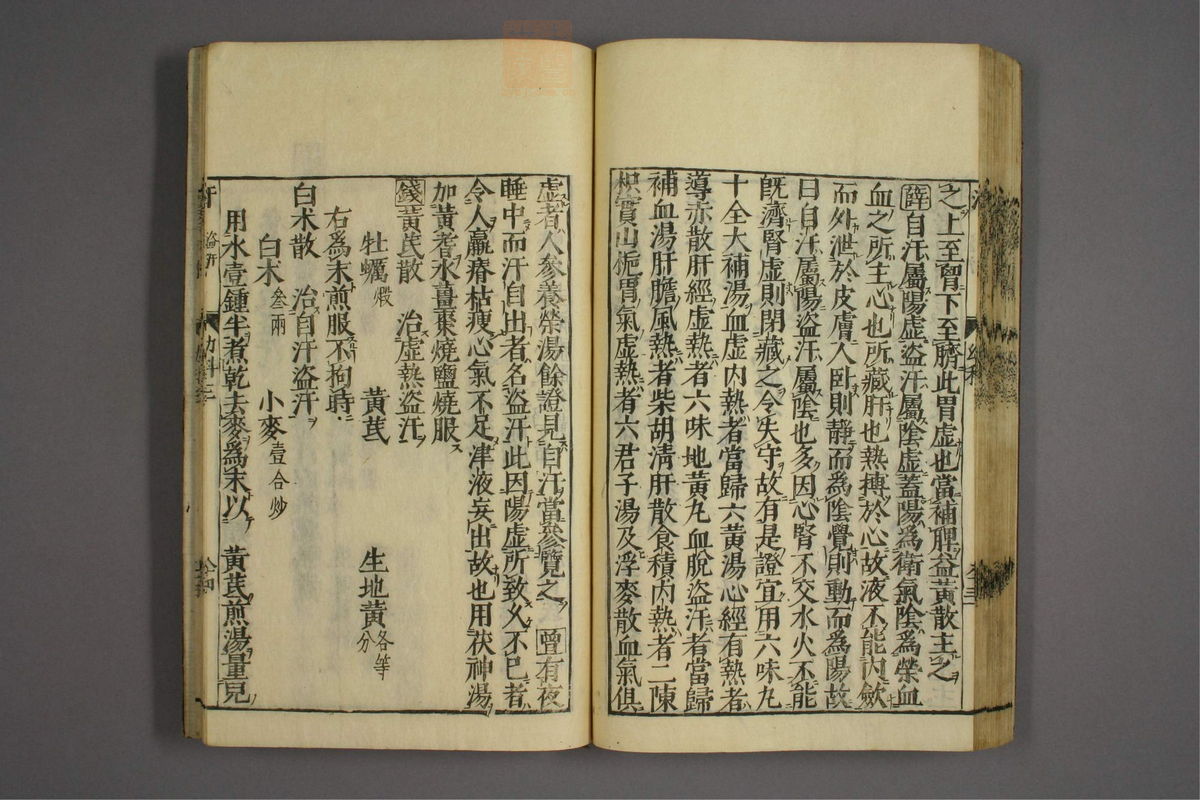 之上至胷下至臍此胃虚也當補脾益黃散主之
薛自汗屬陽虚盗汗屬陰虚蓋陽為衛氣陰為榮血
血之所主心也所藏肝也熱搏於心故液不能内斂
而外泄於皮膚人卧則静而為陰覺則動而為陽故
曰自汗屬陽盗汗屬陰也多因心腎不交水火不能
旣濟腎虚則閉藏之令失守故有是證宜用六味九
十全大補湯血虚内熱者當歸六黃湯心經有熱者
導赤散肝經虚熱者六味地黃九血脫盗汗者當歸
補血湯肝膽風熱者柴胡清肝散食積内熱者二陳
枳實山梔胃氣虚熱者六君子湯及浮麥散血氣俱
虚者人參養榮湯餘證見自汗當參覽之 曾有夜
睡中而汗自出者名盗汗此因陽虚所致久不已者
令人羸瘠枯瘦心氣不足津液妄出故也用茯神湯
加黃耆水薑棗燒鹽燒服
錢黃芪散 治虚熱盗汗
牡蠣煅 黃芪 生地黃各等分
右為末煎服不拘時
白术散 治自汗盗汗
白术叁兩 小麥壹合炒
用水壹鍾半煮乾去麥為末以 黃芪煎湯量兒
汗 幼科三